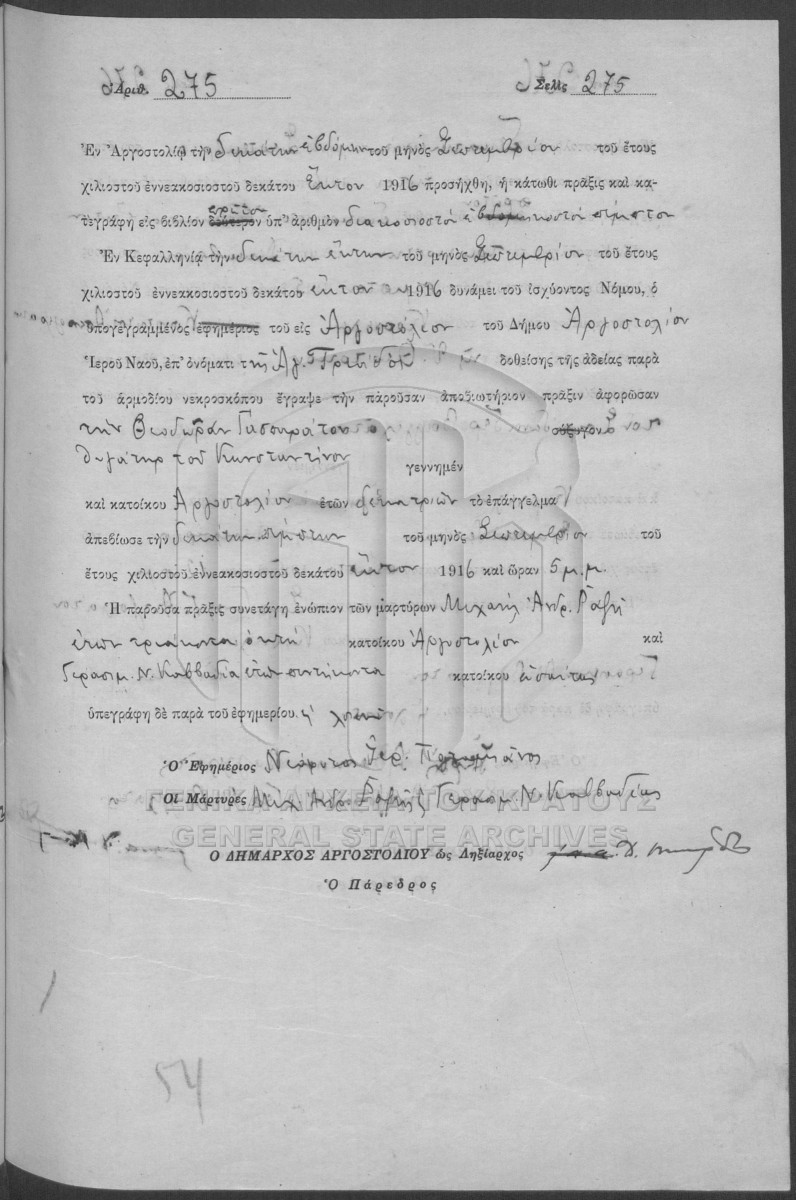 Ἀριθ. 275 Σελὶς 275
Ἐν Ἀργοστολίῳ τὴν δεκάτην ἑβδόμην τοῦ μηνὸς Σεπτεμβρίου τοῦ ἔτους
χιλιοστοῦ ἐννεακοσιοστοῦ δεκάτου ἕκτου 1916 προσήχθη, ἡ κάτωθι πρᾶξις καὶ κα-
τεγράφη εἰς βιβλίον δεύτερον τρίτον ὑπ' ἀριθμὸν διακοσιοστὸν ἑβδομηκοστὸν πέμπτον
Ἐν Κεφαλληνίᾳ τὴν δεκάτην ἕκτην τοῦ μηνὸς Σεπτεμβρίου τοῦ ἔτους
χιλιοστοῦ ἐννεακοσιοστοῦ δεκάτου ἕκτου 1916 δυνάμει τοῦ ἰσχύοντος Νόμου, ὁ
ὑπογεγραμμένος ἐφημέριος τοῦ εἰς Ἀργοστόλιον τοῦ Δήμου Ἀργοστολίου
Ἱεροῦ Ναοῦ, ἐπ' ὀνόματι τῆς Ἁγ. δοθείσης τῆς ἀδείας παρὰ
τοῦ ἁρμοδίου νεκροσκόπου ἔγραψε τὴν παροῦσαν ἀποβιωτήριον πρᾶξιν ἀφορῶσαν
τὴν Θεοδώραν Γασπαράτου σύζυγον
θυγάτηρ τοῦ Κωνσταντίνου γεννημέν
καὶ κατοίκου Ἀργοστολίου ἐτῶν δεκατριῶν τὸ ἐπάγγελμα
ἀπεβίωσε τὴν δεκάτην πέμπτην τοῦ μηνὸς Σεπτεμβρίου τοῦ
ἔτους χιλιοστοῦ ἐννεακοσιοστοῦ δεκάτου ἕκτου 1916 καὶ ὥραν 5 μ.μ.
Ἡ παροῦσα πρᾶξις συνετάγη ἐνώπιον τῶν μαρτύρων Μιχαὴλ Ἀνδρ. Ραζῆ
ἐτῶν τριάκοντα ὀκτὼ κατοίκου Ἀργοστολίου καὶ
Γερασίμ. Ν. Καββαδία ἐτῶν πεντήκοντα κατοίκου
ὑπεγράφη δὲ παρὰ τοῦ ἐφημερίου.
Ὁ Ἐφημέριος Νεόφυτος Ἱερ.
Οἱ Μάρτυρες Μιχ. Ἀνδρ. Ραζῆς Γεράσιμ. Ν. Καββαδίας
ΓΕΝΙΚΑ ΑΡΧΕΙΑ ΤΟΥ ΚΡΑΤΟΥΣ
GENERAL STATE ARCHIVES
Ο ΔΗΜΑΡΧΟΣ ΑΡΓΟΣΤΟΛΙΟΥ ὡς Ληξίαρχος
Ὁ Πάρεδρος
54